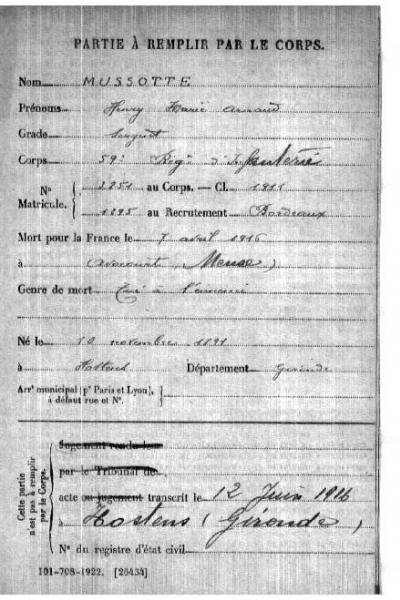 PARTIE À REMPLIR PAR LE CORPS.
Nom MUSSOTTE
Prénoms Henry Marie Arnaud
Grade Sergent
Corps 59e Regt d'Infanterie
No Matricule. { 2251 au Corps. — Cl. 1911
1895 au Recrutement Bordeaux
Mort pour la France le 7 avril 1916
à Avocourt (Meuse)
Genre de mort Tué à l'ennemi
Né le 10 novembre 1891
à Hostens Département Gironde
Arrt municipal (pr Paris et Lyon), à défaut rue et No.
Cette partie n'est pas à remplir par le Corps.
Jugement rendu le
par le Tribunal de
acte ou jugement transcrit le 12 Juin 1916
à Hostens (Gironde)
No du registre d'état civil
101-708-1922. [26434]